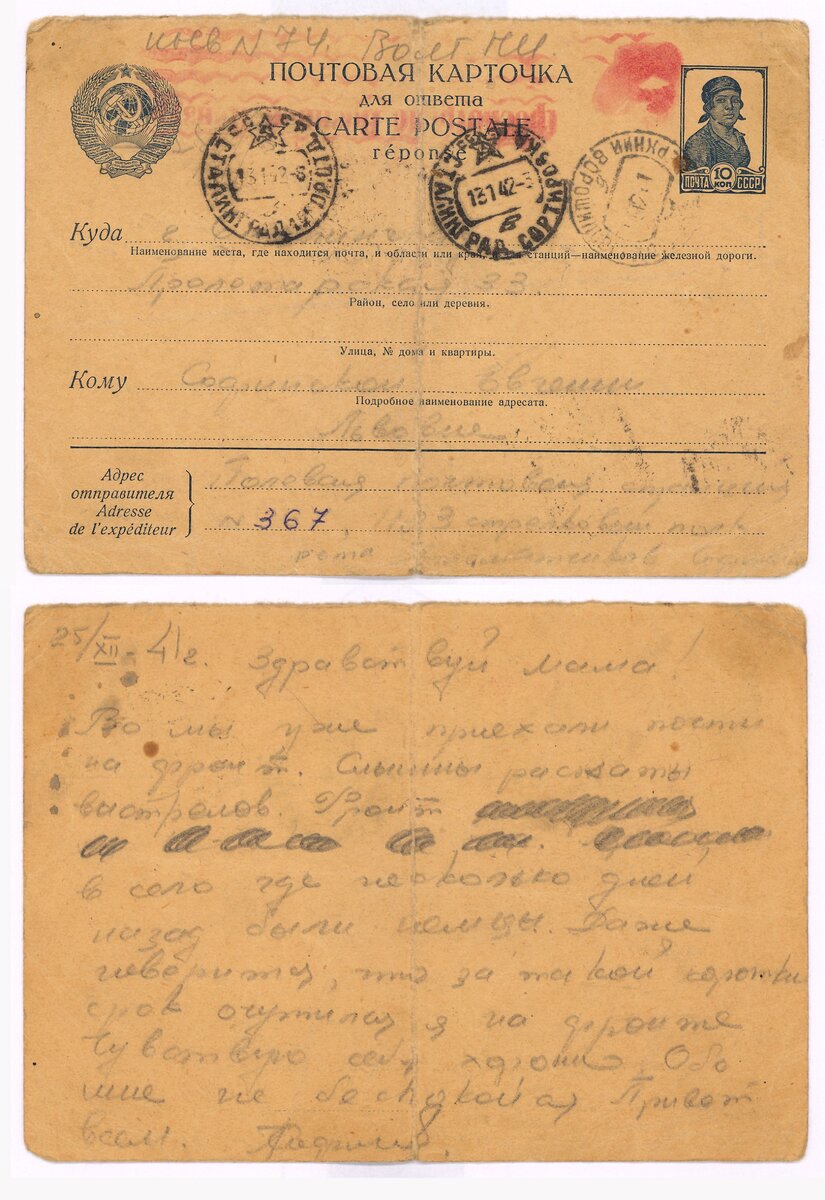 ПОЧТОВАЯ КАРТОЧКА
для ответа
CARTE POSTALE
réponse
СССР СТАЛИНГРАД
13 1 42
СССР СТАЛИНГРАД СОРТИРОВКА
13 1 42
в
ПОЧТА 10 КОП СССР
Куда г.
Наименование места, где находится почта, и области или края, для станций—наименование железной дороги.
Пролетарская 33.
Район, село или деревня.
Улица, № дома и квартиры.
Кому Евгении
Подробное наименование адресата.
Львовне
Адрес
отправителя
Adresse
de l'expéditeur
Полевая почтовая станция
N 367, стрелковый полк
рота
25/XII-41г. Здравствуй мама!
Во мы уже приехали почти
на фронт. Слышны раскаты
выстрелов. Фронт
в село где несколько дней
назад были немцы. Даже
не верится, что за такой коротки
срок очутился я на фронте
Чувствую себя хорошо. Обо
мне не беспокойся Привет
всем.